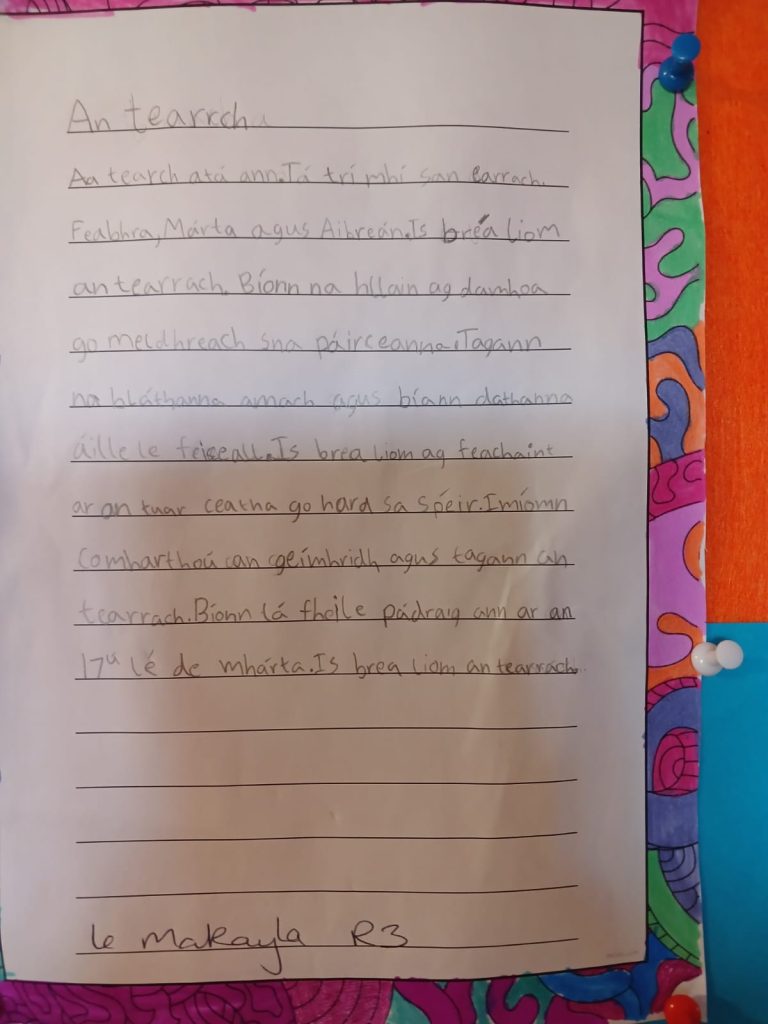 An tearrch
An tearch atá ann. Tá trí mhí san earrach.
Feabhra, Márta agus Aibreán. Is bréa liom
an tearrach. Bíonn na hUain ag damhoa
go meidhreach sna páirceanna. Tagann
na bláthanna amach agus bíann dathanna
áille le feiceall. Is brea liom ag feachaint
ar an tuar ceatha go hard sa spéir. Imíomn
comharthaú an geímhridh agus tagann an
tearrach. Bíonn lá fheile pádraig ann ar an
17ú lé de mhárta. Is brea liom an tearrach.
le Makayla R3